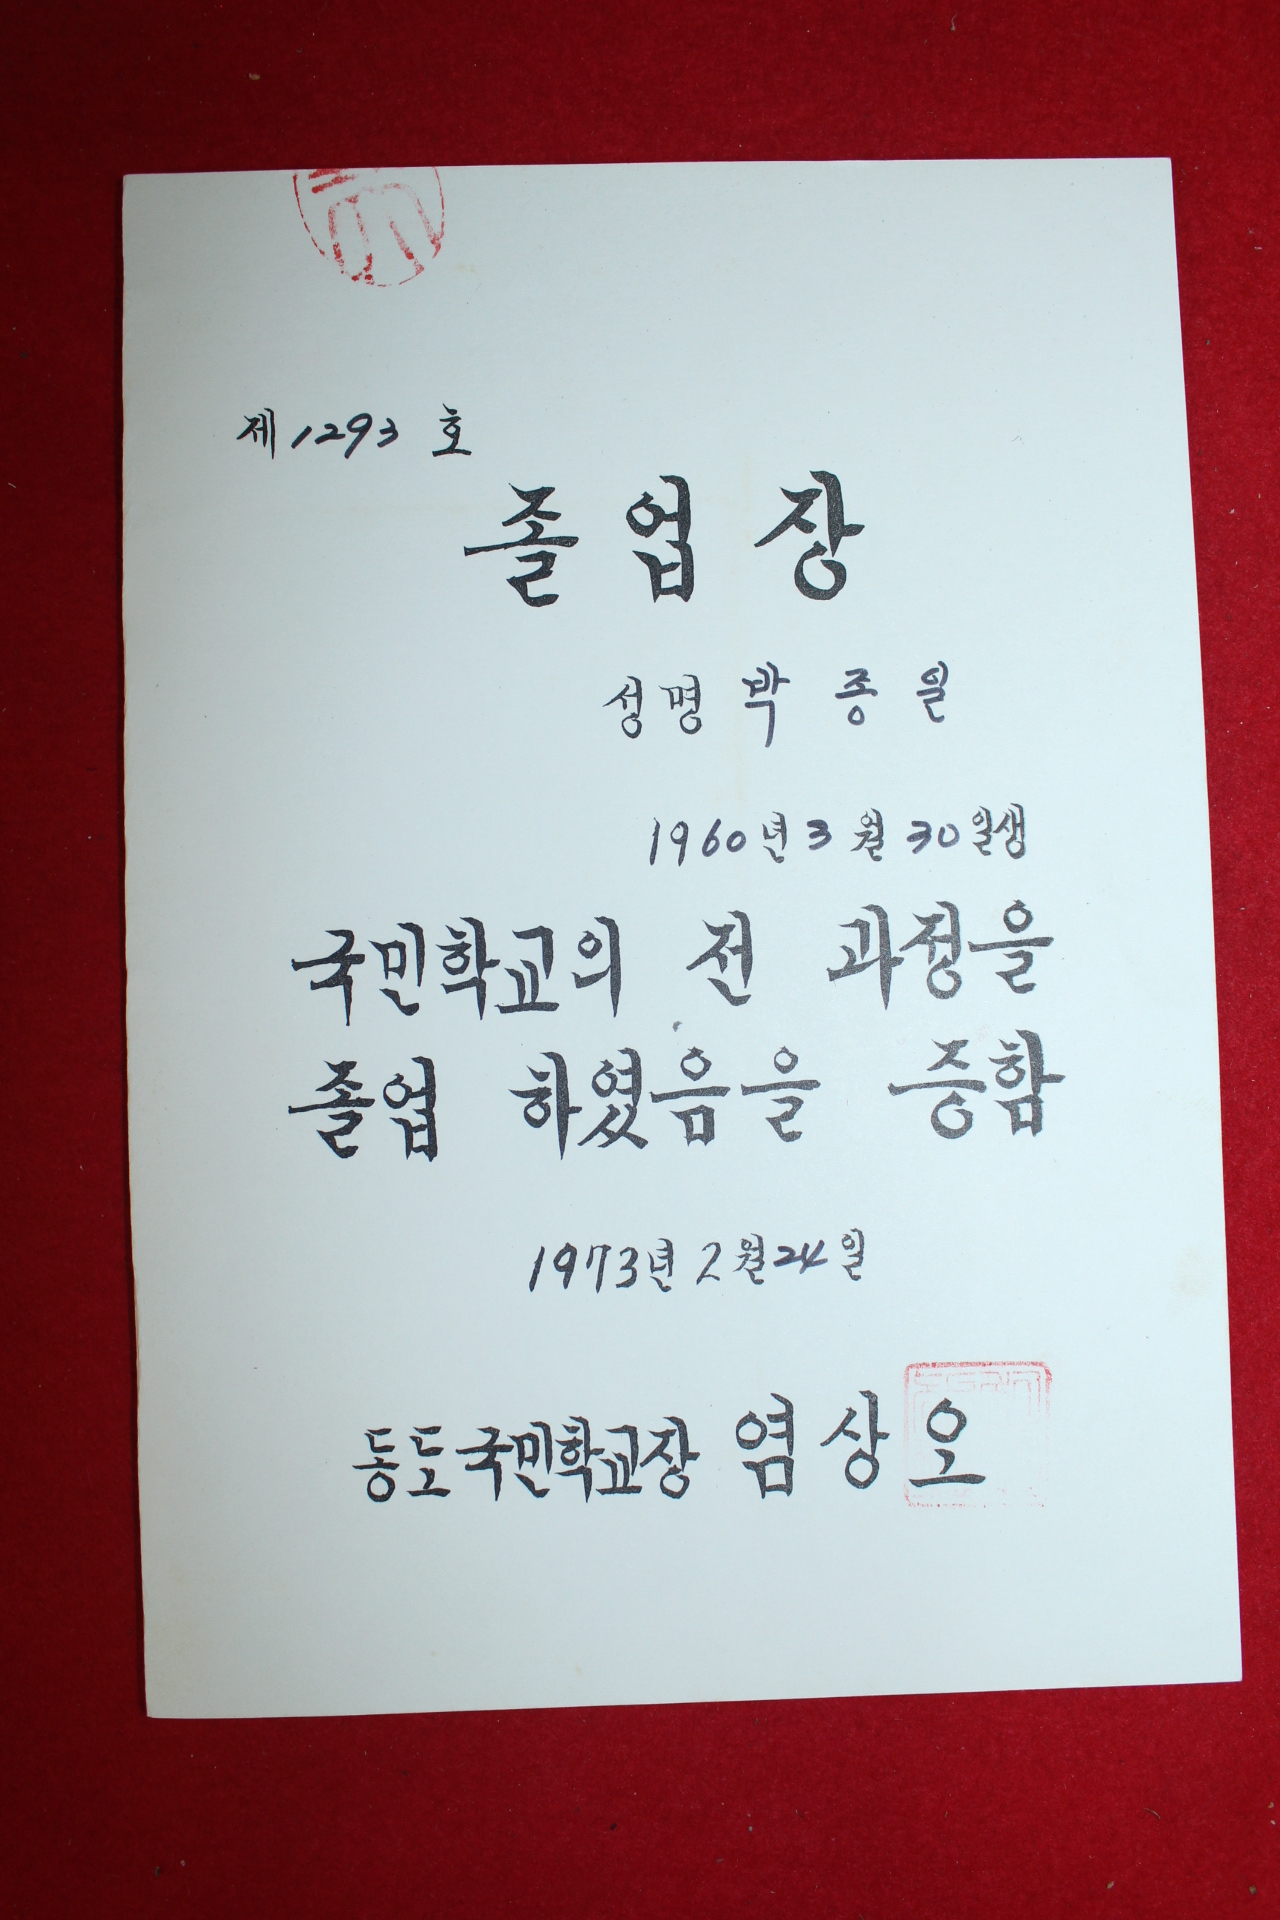 제 1293 호
졸업장
성명 박종일
1960년 3월 30일생
국민학교의 전 과정을
졸업 하였음을 증함
1973년 2월 24일
동도국민학교장 염상오